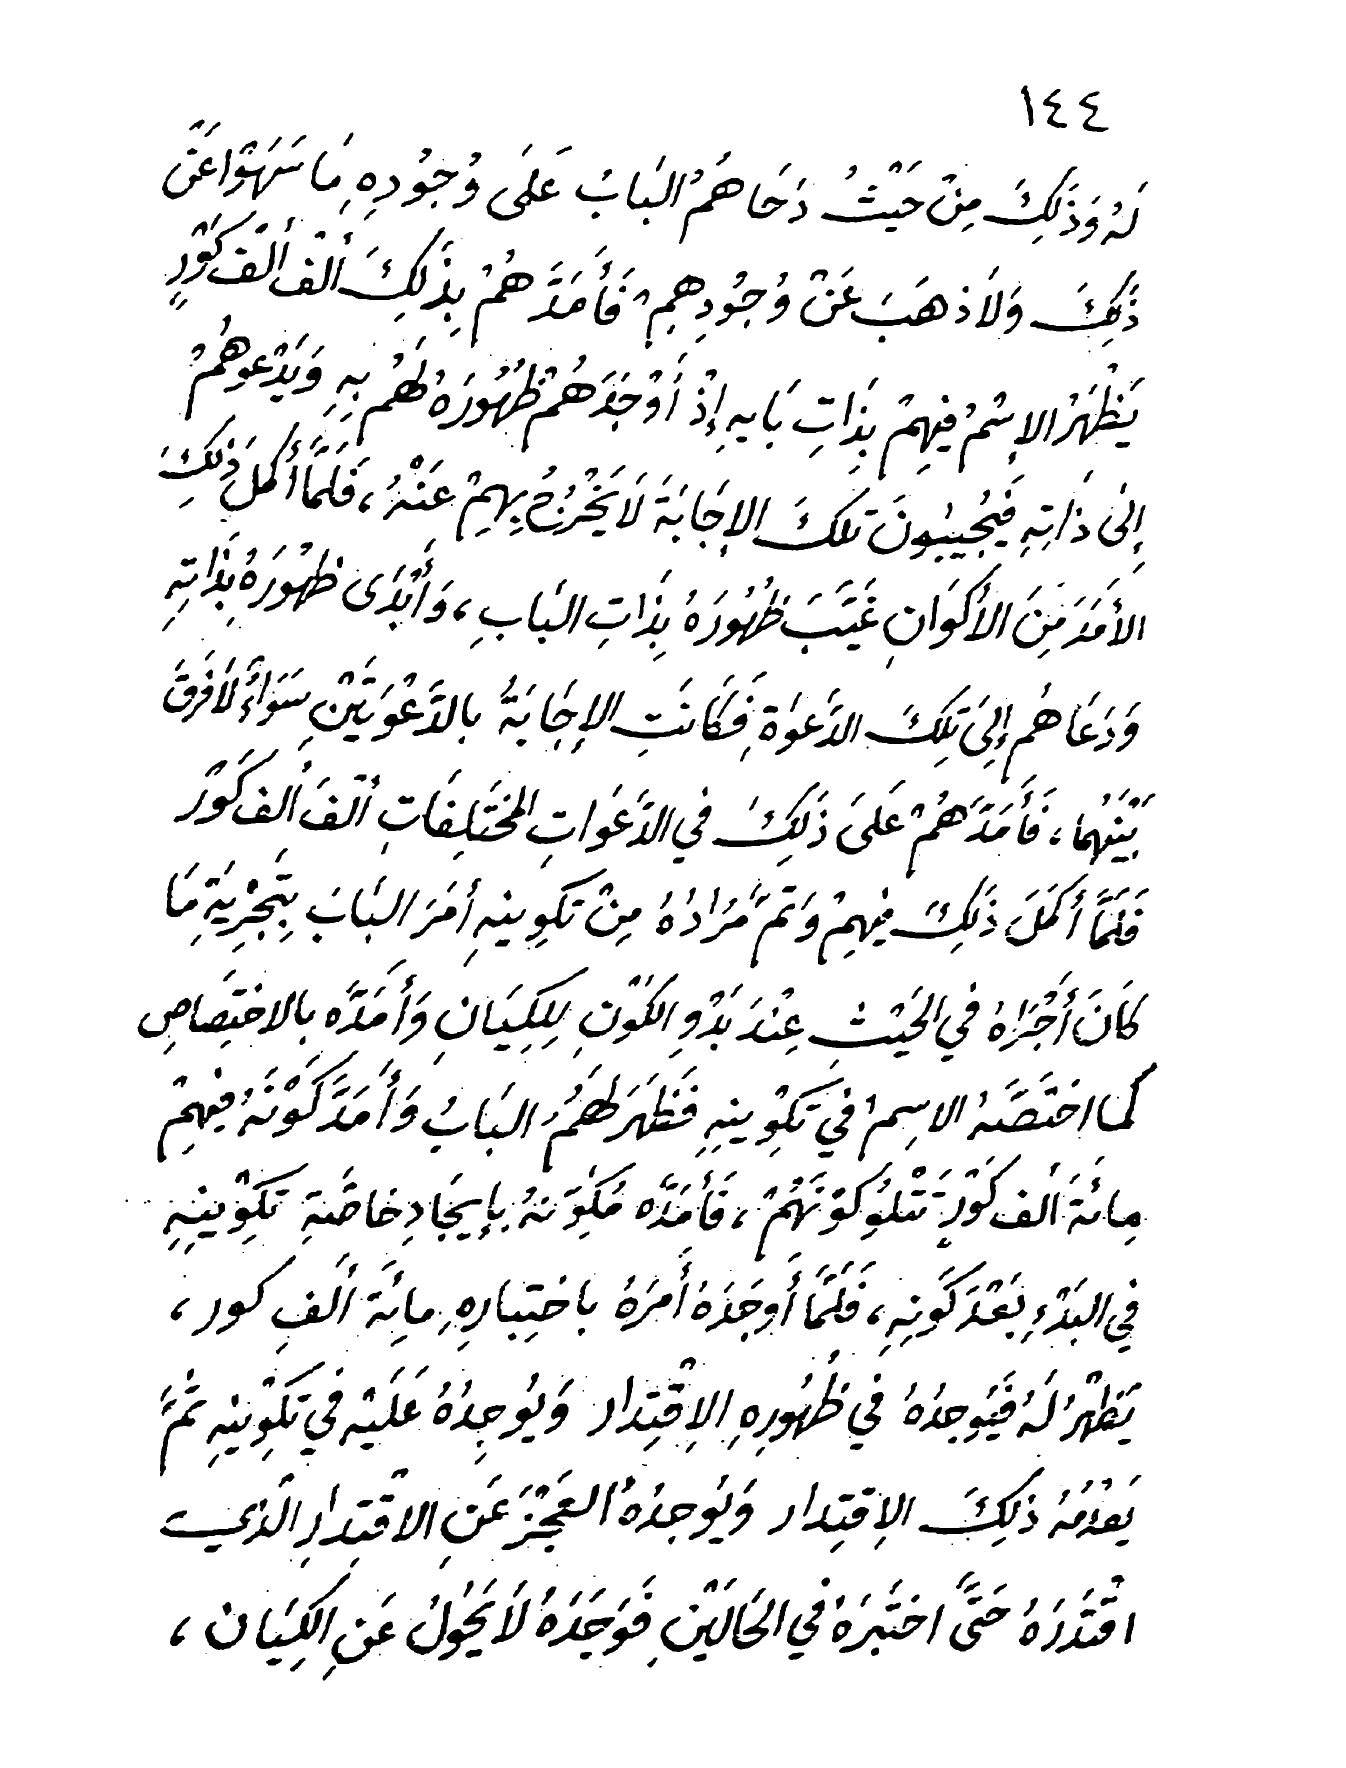 ١٤٤
لَهُ وَذَلِكَ مِنْ حَيْثُ دَحَاهُمُ البَابُ عَلَى وُجُودِهِ مَا سَهَوْا عَنْ
ذَلِكَ وَلاَ ذهَبَ عَنْ وُجُودِهِمِ فَأَمَدَّهُمْ بِذَلِكَ أَلْفَ أَلْفَ كَوْرٍ
يَظْهَرُ الإسْمُ فِيهِمْ بِذَاتِ بَابِهِ إِذْ أَوْجَدَهُمْ ظُهُورَهُ لَهُمْ بِهِ وَيَدْعُوهُمْ
إِلَى ذَاتِهِ فَيُجِيبُونَ تِلكَ الإجَابَةَ لَا يَخْرُجُ بِهِمْ عَنْهُ، فَلَمَّا أَكمَلَ ذَلِكَ
الأَمَدَ مِنَ الأَكوَانِ غَيَّبَ ظُهُورَهُ بِذَاتِ البَابِ، وَأَبْدَى ظهُورَهُ بِذَاتِهِ
وَدَعَاهُم إِلَى تِلكَ الدَّعوَة فَكَانَتِ الإجَابَةُ بالدَّعْوَتَيْنِ سَوَاءً لَا فَرقَ
بَيْنَهُمَا، فَأَمَدَّهُمْ عَلَى ذَلِكَ في الدَّعَوَاتِ المُختَلِفَاتِ أَلْفَ أَلفَ كَوْر
فَلَمَّا أَكمَلَ ذَلِكَ فِيهِمْ وَتَمَّ مُرَادُهُ مِنْ تَكوِينِهِ أَمَرَ البَابَ بِتَجْرِيَةِ مَا
كَانَ أَجْرَاهُ في الحَيْثِ عِنْدَ بَدْوِ الكَوْنِ لِلكِيَانِ وَأَمَدَّه بالاختِصَاصِ
كما اختَصَّهُ الاسِم في تَكوِينِهِ فَظَهَرَ لَهُمُ البَابُ وَأَمَدَّ كَوْنَهُ فِيهِمْ
مِائَةَ أَلف كَوْرٍ تَتْلُو كَوْنَهُمْ، فَأَمَدَّه مُكَوِّنهُ بِإِيجَادِ خاصَّةِ تكوِينِهِ
في البَدْءِ بَعْدَ كَونِهِ، فَلَمَّا أَوجَدَهُ أَمرَهُ باختِبارِهِ مِائَةَ أَلفِ كور،
يَظهَرُ لَهُ فَيُوجِدُهُ في ظُهُورِهِ الاِقْتِدار وَيُوجِدُهُ عَلَيْهِ في تَكوِينِهِ ثُمَّ
يَعْدِمُهُ ذلِكَ الاِقتِدار وَيُوجِدُهُ العَجْزَ عَنِ الاقْتِدَارِ الَّذي
اقْتَدَرَهُ حَتَّى اختَبَرَهُ في الحَالَتَيْنِ فَوَجَدَهُ لَا يَحُولُ عَنِ الكِيَان،